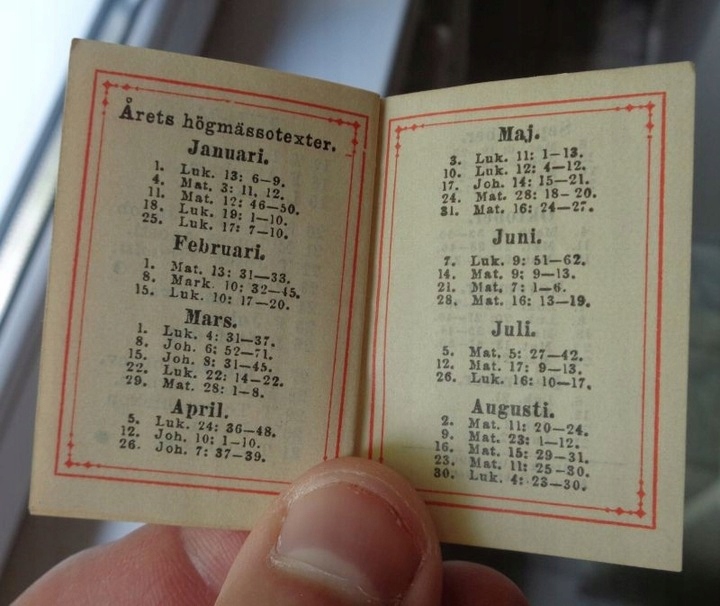 Årets högmässotexter.
Januari.
1. Luk. 13: 6—9.
4. Mat. 3: 11, 12.
11. Mat. 12: 46—50.
18. Luk. 19: 1—10.
25. Luk. 17: 7—10.
Februari.
1. Mat. 13: 31—33.
8. Mark. 10: 32—45.
15. Luk. 10: 17—20.
Mars.
1. Luk. 4: 31—37.
8. Joh. 6: 52—71.
15. Joh. 8: 31—45.
22. Luk. 22: 14—22.
29. Mat. 28: 1—8.
April.
5. Luk. 24: 36—48.
12. Joh. 10: 1—10.
26. Joh. 7: 37—39.
Maj.
3. Luk. 11: 1—13.
10. Luk. 12: 4—12.
17. Joh. 14: 15—21.
24. Mat. 28: 18—20.
31. Mat. 16: 24—27.
Juni.
7. Luk. 9: 51—62.
14. Mat. 9: 9—13.
21. Mat. 7: 1—6.
28. Mat. 16: 13—19.
Juli.
5. Mat. 5: 27—42.
12. Mat. 17: 9—13.
26. Luk. 16: 10—17.
Augusti.
2. Mat. 11: 20—24.
9. Mat. 23: 1—12.
16. Mat. 15: 29—31.
23. Mat. 11: 25—30.
30. Luk. 4: 23—30.